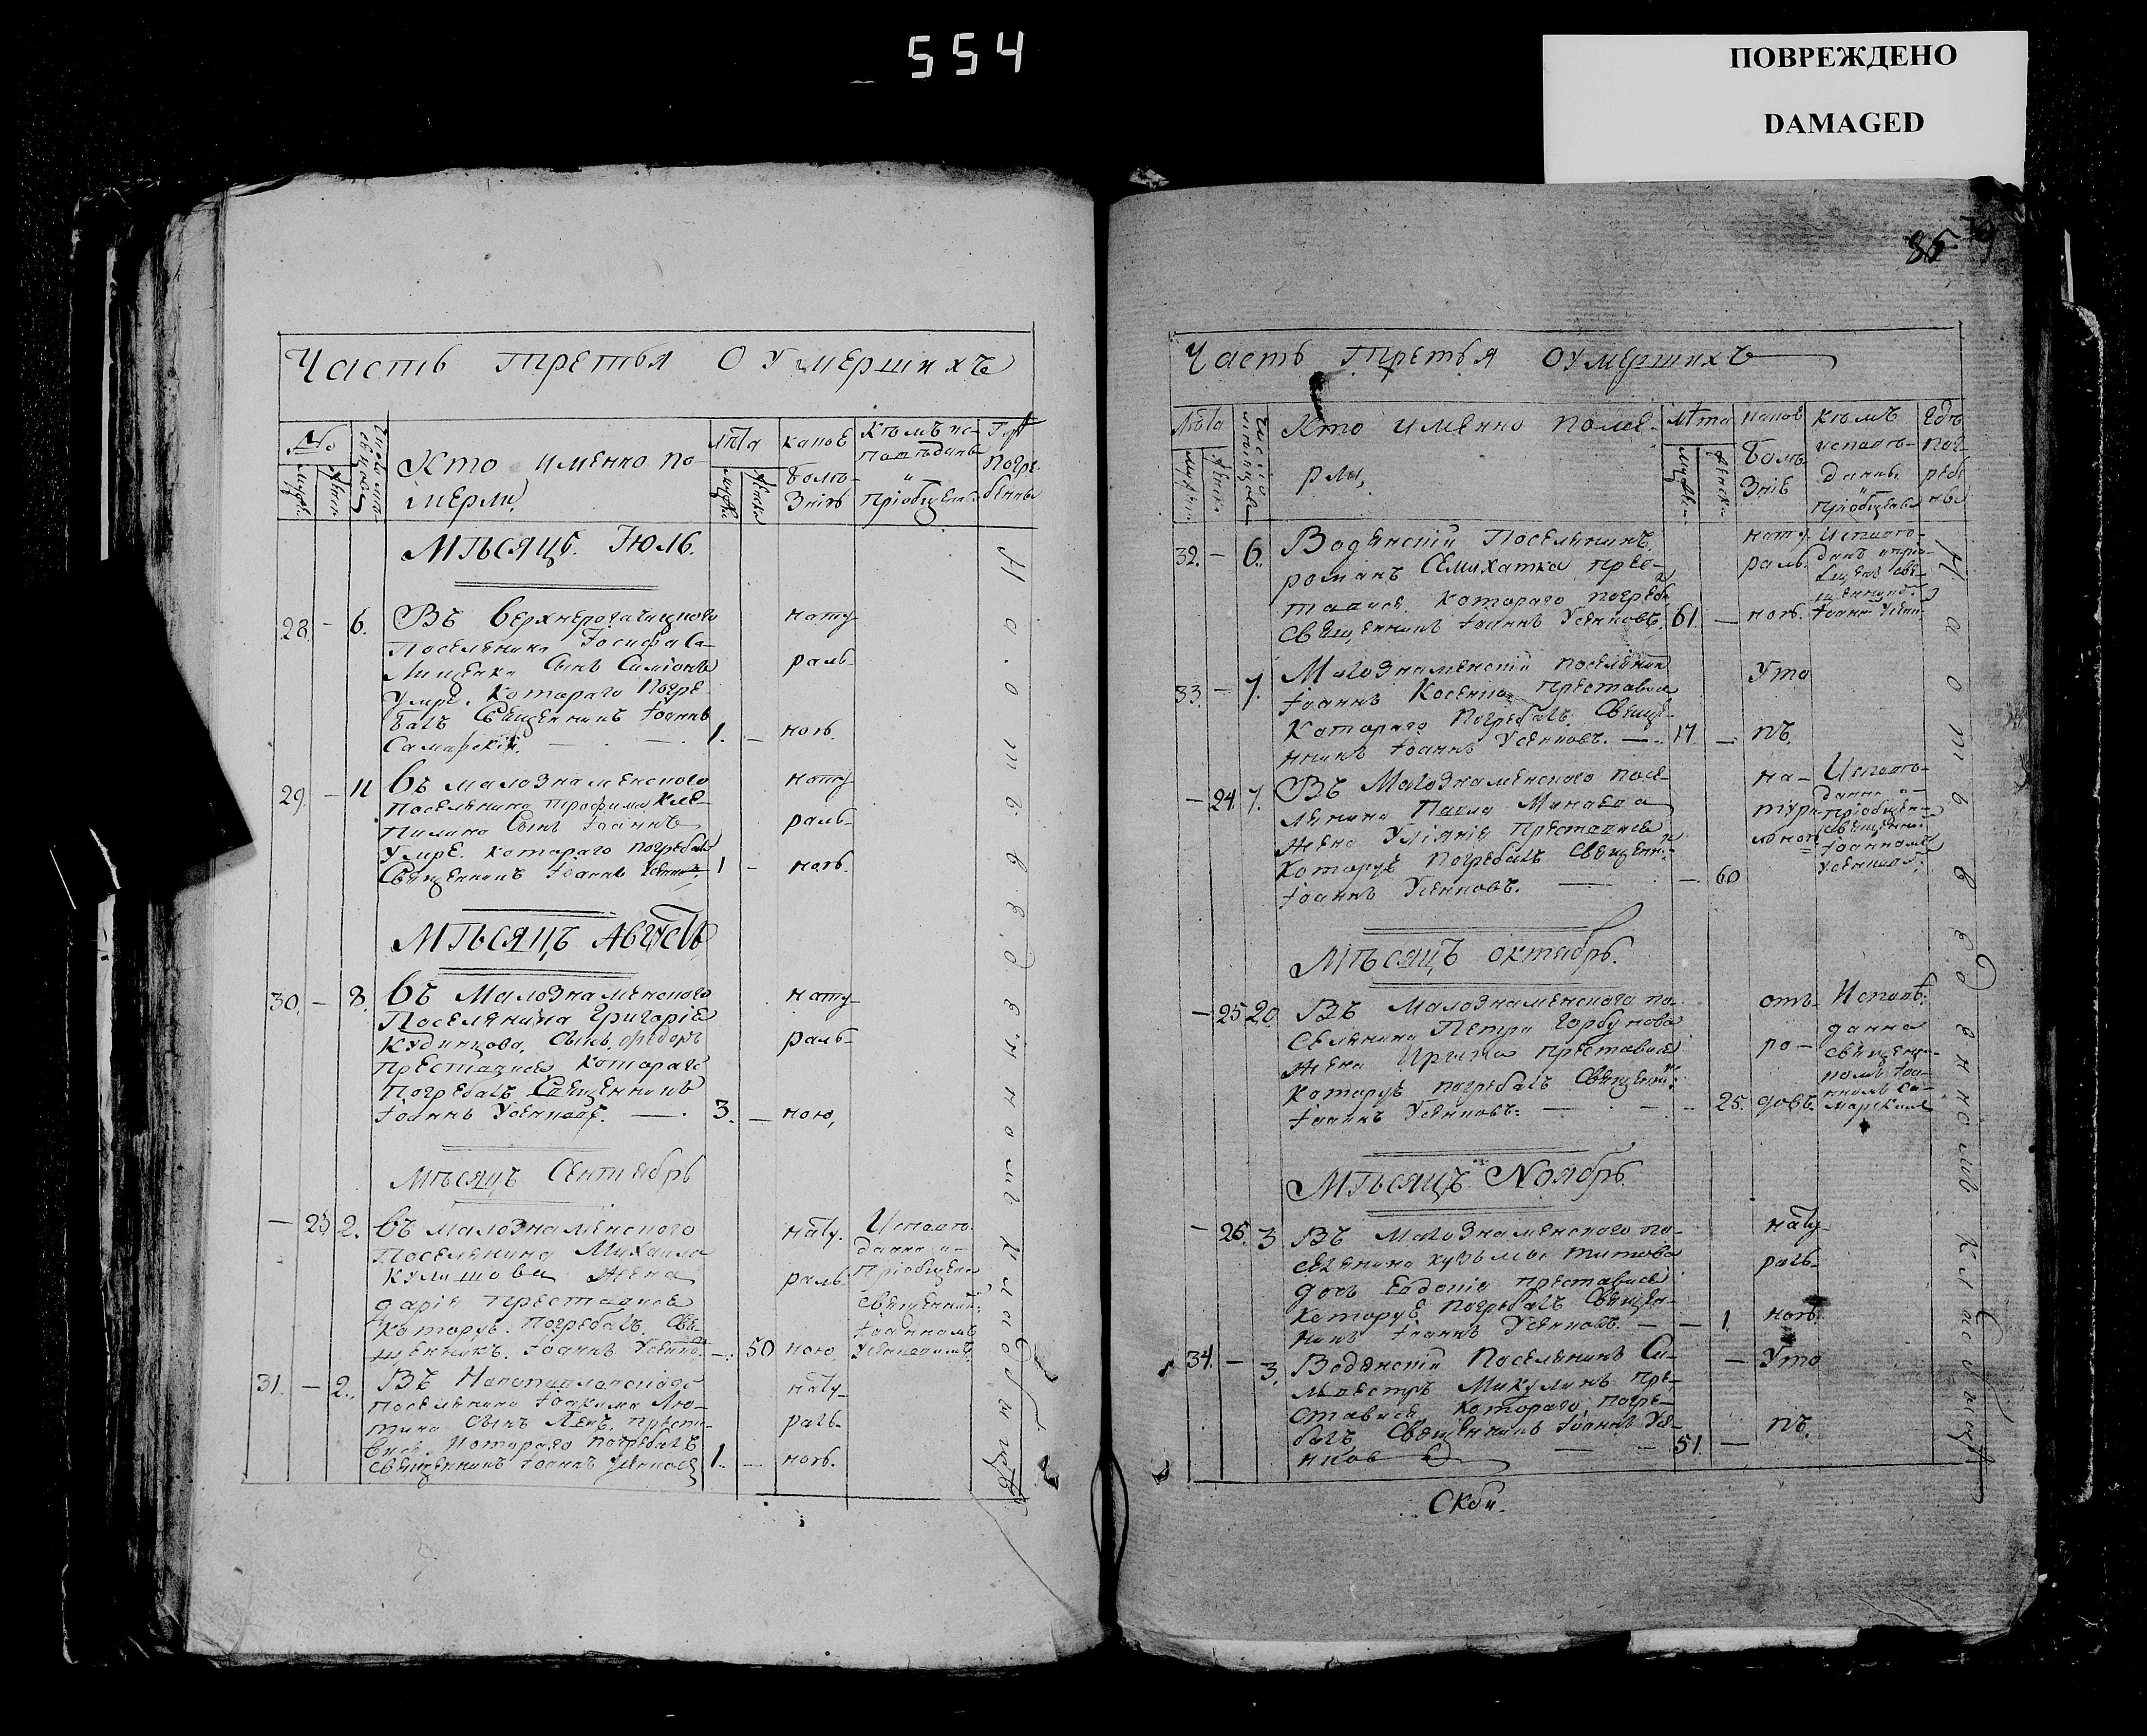 554
ПОВРЕЖДЕНО
DAMAGED
Часть третья О Умершихъ
№
Кто именно по
мерли,
Лѣта
какое
болѣ-
знію
Кѣмъ ис-
повѣданы
и
пріобщены
Гдѣ
погре-
бены
Мѣсяцъ Іюль.
28. - 6. Въ верхнерогачицкого
поселянина Іосифа Са-
сынъ Симіонъ
умре. Котораго погре-
балъ Священникъ Іоаннъ
Самарскій. 1. -
нату-
раль-
ною.
29. - 11 въ малознаменского
поселянина Трофима
сынъ Іоаннъ
умре. которого погребалъ
Священникъ Іоаннъ Усенковъ 1 -
нату-
раль-
ною.
Мѣсяцъ Августъ
30. - 8. въ Малознаменского
Поселянина Григорія
Кудинцова, сынъ Феодоръ
преставися Котораго
погребалъ Священникъ
Іоаннъ Усенковъ. 3. -
нату-
раль-
ною,
Мѣсяцъ Сентябрь
- 23 2. въ малознаменского
Поселянина Михаила
Кулишова Жена
дарія преставися
которую погребалъ Свя-
щенникъ Іоаннъ Усенковъ - 50
нату-
раль-
ною,
Исповѣ-
данна и
пріобщена
священник:
Іоанномъ
Усенковымъ
31. - 2.
поселянина Іоакима Лю-
тина сынъ Левъ преста-
вися. Котораго погребалъ
священникъ Іоаннъ Усенковъ 1. -
нату-
раль-
ною.
На отведенномъ кладбищѣ
85
Часть третья О умершихъ
Лѣта
Число
мѣсяцовъ
Кто именно поме-
рли,
Лѣта
какое
болѣ-
зніе
кѣмъ
исповѣ-
даны
и
пріобщены
гдѣ
пог-
ребе-
ны
32. - 6. Водянскій Поселянинъ
романъ Семихатка прес-
тавися. Котораго погребалъ
Священникъ Іоаннъ Усенковъ. 61. -
нату-
раль-
ною.
Исповѣ-
данъ и прио-
бщенъ свя-
щенник:
Іоан: Усен:
33. - 7. Малознаменскій поселянинъ
Іоаннъ Косенко преставися
Котораго Погребалъ Свяще-
нникъ Іоаннъ Усенковъ. 17. -
Уто
пъ.
- 24. 7. Въ Малознаменского посе-
лянина Павла Минаева
Жена Уліянія Преставися
Которую погребалъ Священни:
Іоаннъ Усенковъ. - 60
на-
тура-
льною
Исповѣ-
данна и
пріобщен-
священник:
Іоанномъ
Усенковы:
Мѣсяцъ октябрь.
- 25 20. Въ Малознаменского по-
селянина Петра Горбунова
Жена Ирына преставися
которую погребалъ Священни:
Іоаннъ Усенковъ: - 25.
отъ
ро-
довъ.
Исповѣ-
данна
священ-
комъ Іоа-
нномъ Са-
марскимъ
Мѣсяцъ Ноябрь.
- 26. 3 Въ Малознаменского по-
селянина кузьмы титова
дочь Евдокія преставися
которую погребалъ Священ-
никъ Іоаннъ Усенковъ. - 1.
нату-
раль-
ною.
34. - 3. Водянскій Поселянинъ Си-
львестръ Микулинъ пре-
ставися котораго погре-
балъ Священникъ Іоаннъ Усе-
нковъ 51. -
Уто
пъ.
На отведенномъ кладбищѣ